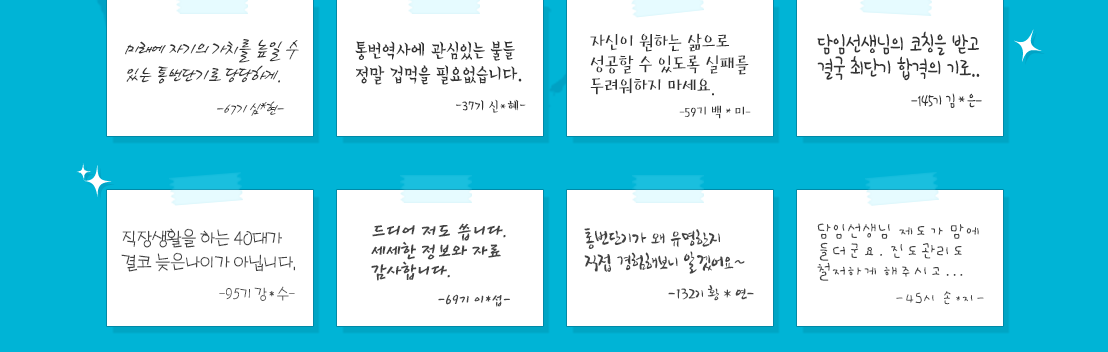 미래에 자기의 가치를 높일 수
있는 통번단기로 당당하게.
-67기 심*현-
통번역사에 관심있는 분들
정말 겁먹을 필요없습니다.
-37기 신*혜-
자신이 원하는 삶으로
성공할 수 있도록 실패를
두려워하지 마세요.
-59기 백*미-
담임선생님의 코칭을 받고
결국 최단기 합격의 기로..
-145기 김*은-
직장생활을 하는 40대가
결코 늦은나이가 아닙니다.
-95기 강*수-
드디어 저도 씁니다.
세세한 정보와 자료
감사합니다.
-69기 이*섭-
통번단기가 왜 유명한지
직접 경험해보니 알겠어요~
-132기 황*연-
담임선생님 제도가 맘에
들더군요. 진도관리도
철저하게 해주시고...
-45시 손*지-